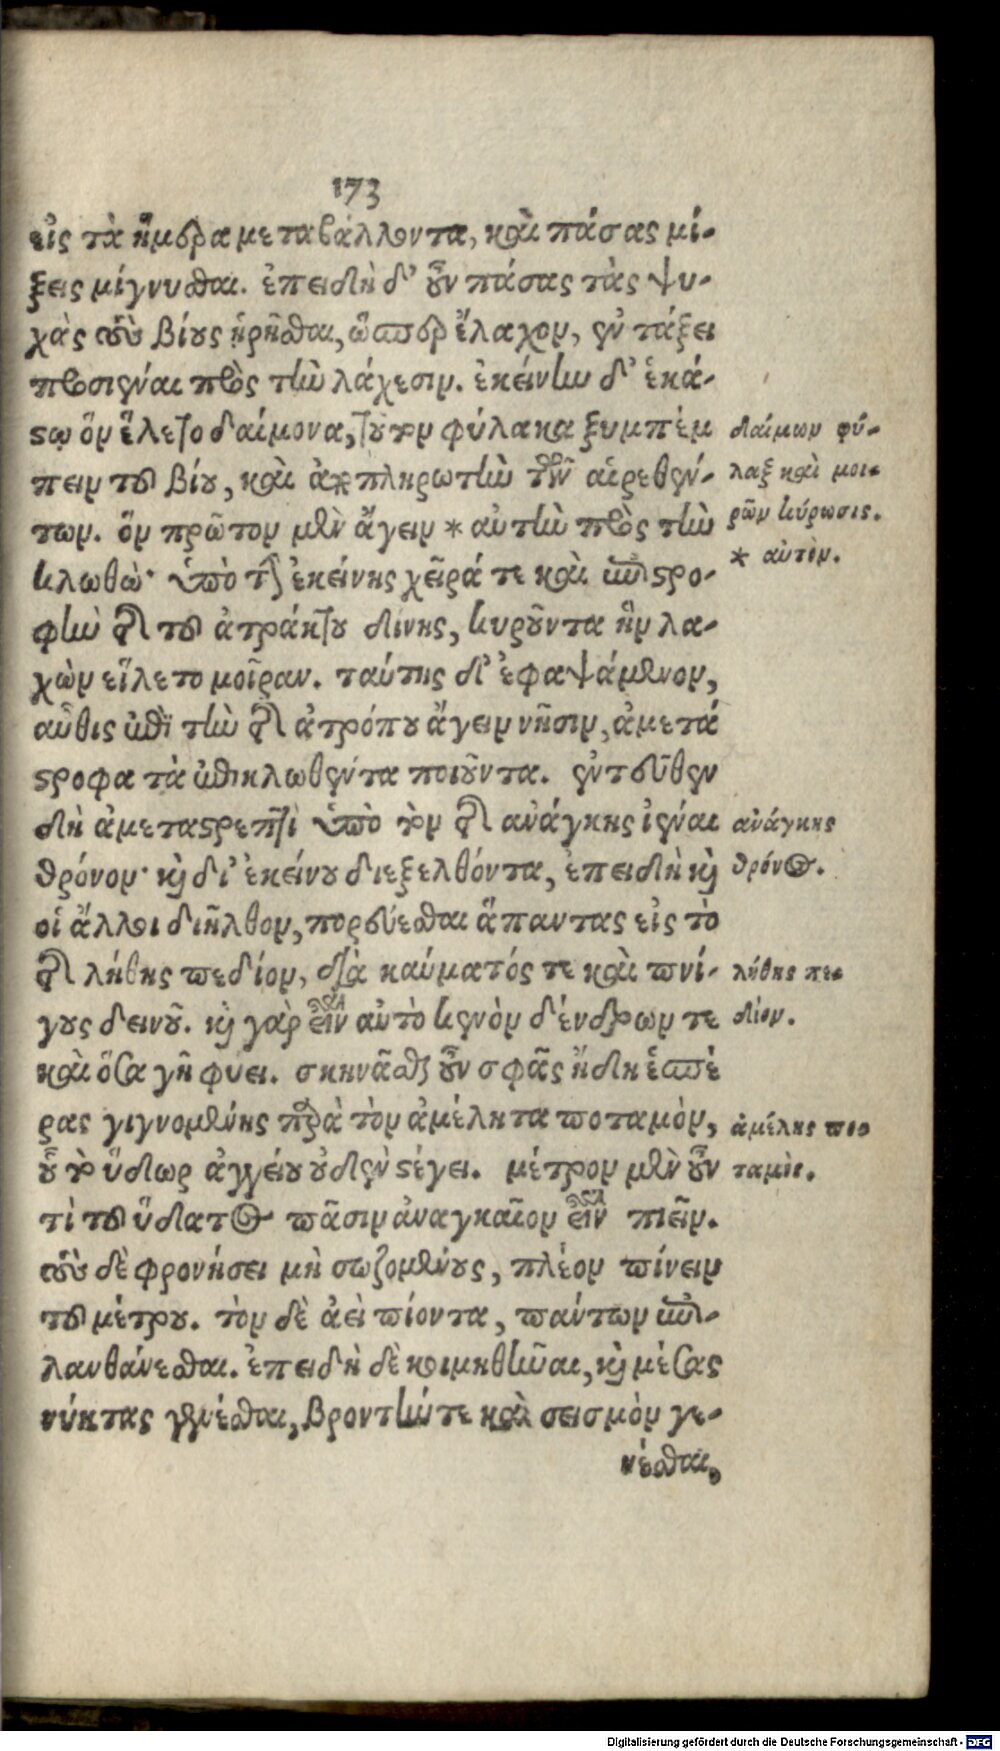 173
εἰς τὰ ἥμερα μεταβάλλοντα, καὶ πάσας μί-
ξεις μίγνυσθαι. ἐπειδὴ δ' οὖν πάσας τὰς ψυ-
χὰς τοὺς βίους ᾑρῆσθαι, ὥσπερ ἔλαχον, ἐν τάξει
προσιέναι πρὸς τὴν λάχεσιν. ἐκείνην δ' ἑκά-
στῳ ὃν εἵλετο δαίμονα, τοῦτον φύλακα ξυμπέμ
πειν τοῦ βίου, καὶ ἀποπληρωτὴν τῶν αἱρεθέν-
των. ὃν πρῶτον μὲν ἄγειν * αὐτὴν πρὸς τὴν
κλωθὼ· ὑπὸ τὴν ἐκείνης χεῖρά τε καὶ ἐπιστρο-
φὴν τῆς τοῦ ἀτράκτου δίνης, κυροῦντα ἣν λα-
χὼν εἵλετο μοῖραν. ταύτης δ' ἐφαψάμενον,
αὖθις ἐπὶ τὴν τῆς ἀτρόπου ἄγειν νῆσιν, ἀμετά
στροφα τὰ ἐπικλωθέντα ποιοῦντα. ἐντεῦθεν
δὴ ἀμεταστρεπτὶ ὑπὸ τὸν τῆς ἀνάγκης ἰέναι
θρόνον· καὶ δι' ἐκείνου διεξελθόντα, ἐπειδὴ καὶ
οἱ ἄλλοι διῆλθον, πορεύεσθαι ἅπαντας εἰς τὸ
τῆς λήθης πεδίον, διὰ καύματός τε καὶ πνί-
γους δεινοῦ. καὶ γὰρ εἶναι αὐτὸ κενὸν δένδρων τε
καὶ ὅσα γῆ φύει. σκηνᾶσθαι οὖν σφᾶς ἤδη ἑσπέ
ρας γιγνομένης παρὰ τὸν ἀμέλητα ποταμὸν,
οὗ τὸ ὕδωρ ἀγγείου οὐδὲν στέγει. μέτρον μὲν οὖν
τὶ τοῦ ὕδατος πᾶσιν ἀναγκαῖον εἶναι πιεῖν.
τοὺς δὲ φρονήσει μὴ σωζομένους, πλέον πίνειν
τοῦ μέτρου. τὸν δὲ ἀεὶ πίοντα, πάντων ἐπι-
λανθάνεσθαι. ἐπειδὴ δὲ κοιμηθῆναι, καὶ μέσας
νύκτας γενέσθαι, βροντήν τε καὶ σεισμὸν γε-
νέσθαι,
δαίμων φύ-
λαξ καὶ μοι-
ρῶν κύρωσις.
* αὐτὸν.
ἀνάγκης
θρόνος.
λήθης πε-
δίον.
ἀμέλης πο-
ταμὸς.
Digitalisierung gefördert durch die Deutsche Forschungsgemeinschaft - DFG